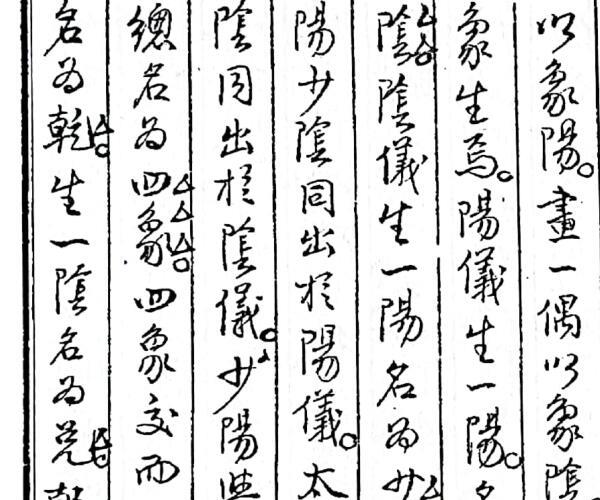 以象陽畫一偶以象陰
象生焉陽儀生一陽名
陰陰儀生一陽名為少
陽少陰同出於陽儀太
陰同出於陰儀少陽與
總名為四象四象交而
名為乾生一陰名為兌